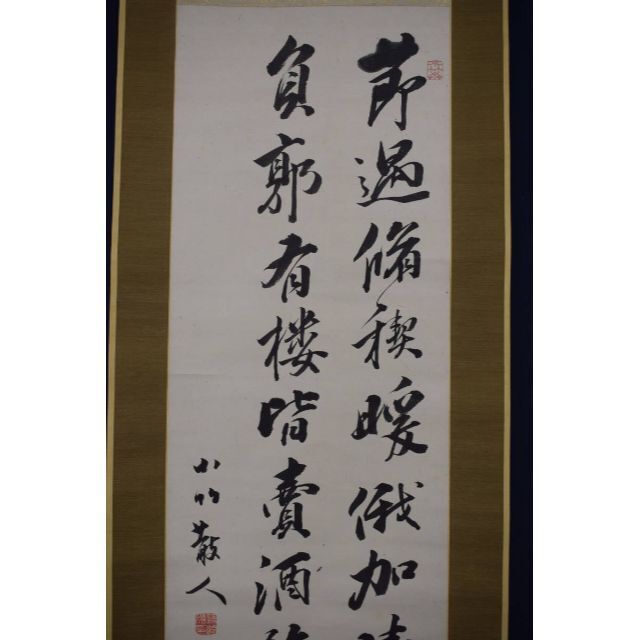 節過脩禊暖俄加
負郭有楼皆賣酒
小竹散人